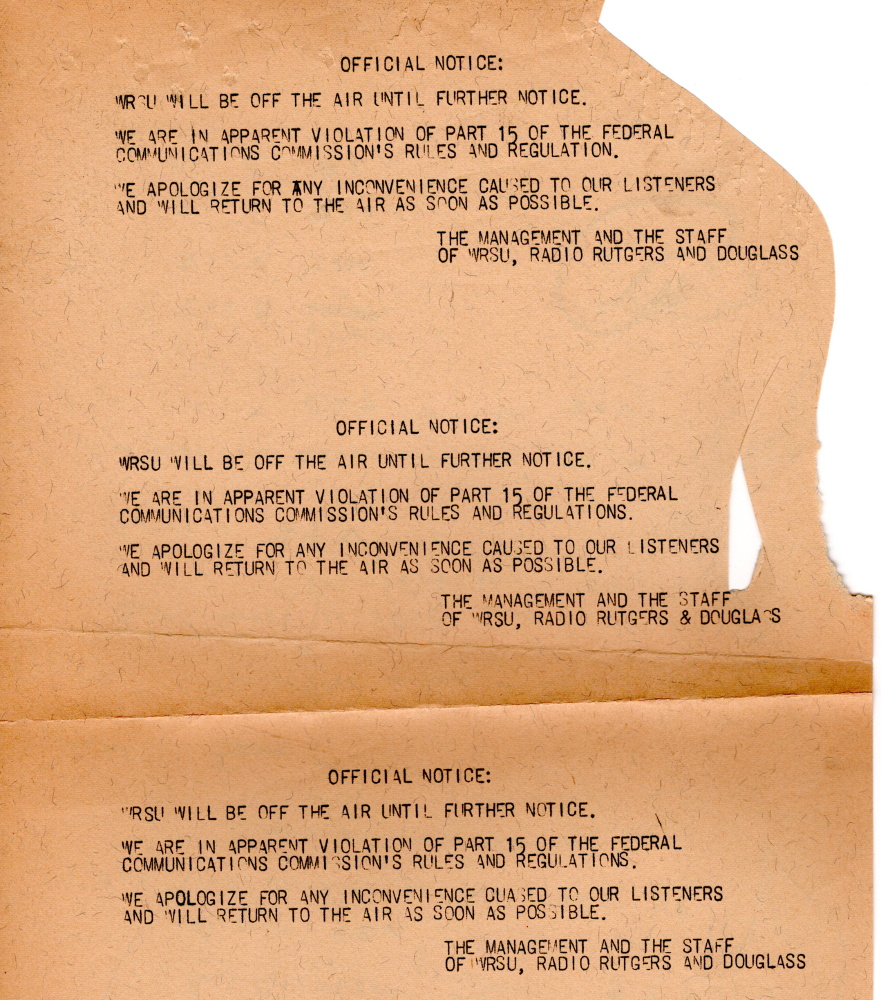 OFFICIAL NOTICE:
WRSU WILL BE OFF THE AIR UNTIL FURTHER NOTICE.
WE ARE IN APPARENT VIOLATION OF PART 15 OF THE FEDERAL
COMMUNICATIONS COMMISSION'S RULES AND REGULATION.
WE APOLOGIZE FOR ANY INCONVENIENCE CAUSED TO OUR LISTENERS
AND WILL RETURN TO THE AIR AS SOON AS POSSIBLE.
THE MANAGEMENT AND THE STAFF
OF WRSU, RADIO RUTGERS AND DOUGLASS
OFFICIAL NOTICE:
WRSU WILL BE OFF THE AIR UNTIL FURTHER NOTICE.
WE ARE IN APPARENT VIOLATION OF PART 15 OF THE FEDERAL
COMMUNICATIONS COMMISSION'S RULES AND REGULATIONS.
WE APOLOGIZE FOR ANY INCONVENIENCE CAUSED TO OUR LISTENERS
AND WILL RETURN TO THE AIR AS SOON AS POSSIBLE.
THE MANAGEMENT AND THE STAFF
OF WRSU, RADIO RUTGERS & DOUGLASS
OFFICIAL NOTICE:
WRSU WILL BE OFF THE AIR UNTIL FURTHER NOTICE.
WE ARE IN APPARENT VIOLATION OF PART 15 OF THE FEDERAL
COMMUNICATIONS COMMISSION'S RULES AND REGULATIONS.
WE APOLOGIZE FOR ANY INCONVENIENCE CUASED TO OUR LISTENERS
AND WILL RETURN TO THE AIR AS SOON AS POSSIBLE.
THE MANAGEMENT AND THE STAFF
OF WRSU, RADIO RUTGERS AND DOUGLASS